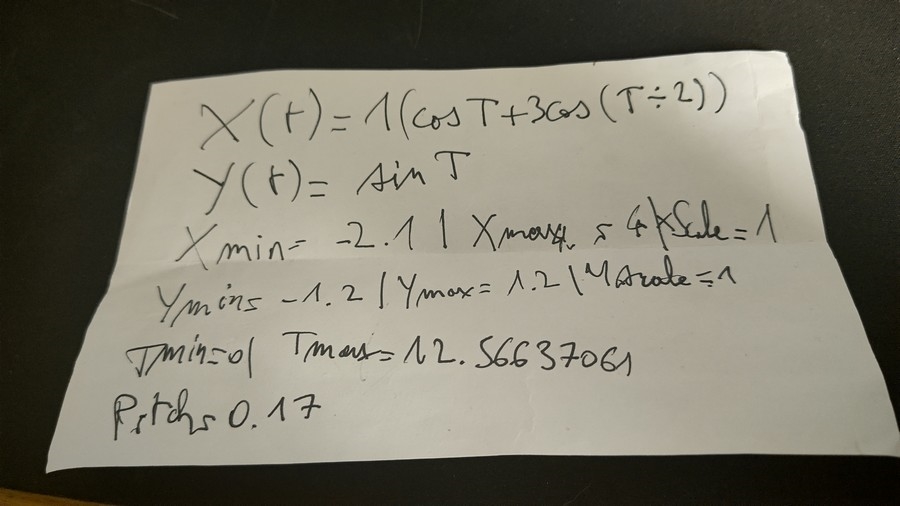 X(t)=1(cosT+3cos(T÷2))
Y(t)= sin T
Xmin= -2.1 | Xmax = 4 | XScale=1
Ymin= -1.2 | Ymax= 1.2 | YScale=1
Tmin=0| Tmax=12.56637061
Pitch= 0.17